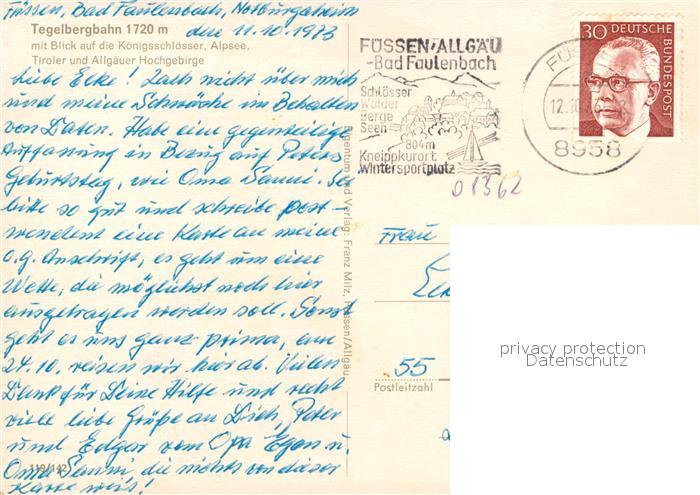 Füssen, Bad Faulenbach, Notburgaheim
den 11.10.1973
Tegelbergbahn 1720 m
mit Blick auf die Königsschlösser, Alpsee,
Tiroler und Allgäuer Hochgebirge
Liebe Elke! Lach nicht über mich
und meine Schwäche im Behalten
von Daten. Habe eine gegenteilige
Auffassung in Bezug auf Peters
Geburtstag, wie Oma Sanni. Sei
bitte so gut und schreibe post-
wendent eine Karte an meine
o.g. Anschrift, es geht um eine
Wette, die möglichst noch hier
ausgetragen werden soll. Sonst
geht es uns ganz prima, am
24.10. reisen wir hier ab. Vielen
Dank für Deine Hilfe und recht
viele liebe Grüße an Dich, Peter
und Edgar vom Opa Egon u.
Oma Sanni, die nichts von dieser
Karte weis!
119/142
Eigentum und Verlag: Franz Milz, Füssen/Allgäu
FÜSSEN/ALLGÄU
-Bad Faulenbach
Schlösser
Wälder
Berge
Seen
804m
Kneippkurort
Wintersportplatz
FÜSS
12.10
8958
30 DEUTSCHE
BUNDESPOST
01362
Frau
55
Postleitzahl
privacy protection
Datenschutz